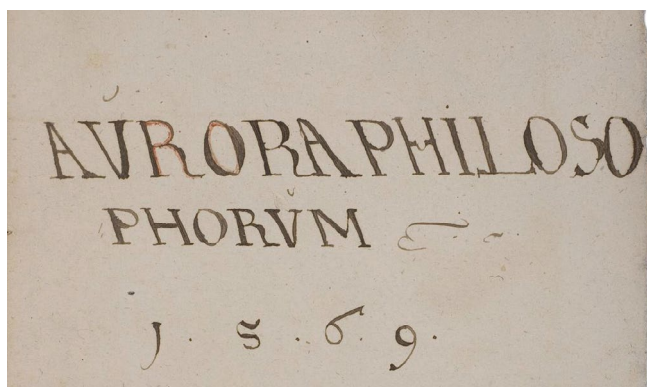 AVRORA PHILOSO
PHORVM &.
1.5.6.9.